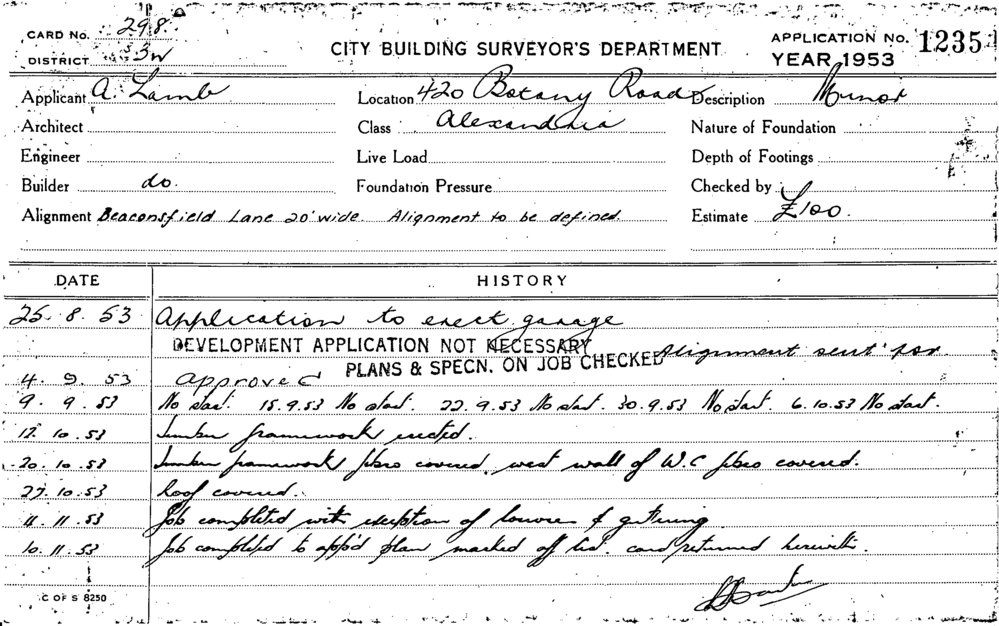 CARD No. 298
DISTRICT S3W
CITY BUILDING SURVEYOR'S DEPARTMENT
APPLICATION No. 1235
YEAR 1953
Applicant A. Lamb
Location 420 Botany Road
Description Minor
Architect
Class Alexandria
Nature of Foundation
Engineer
Live Load
Depth of Footings
Builder do.
Foundation Pressure
Checked by
Alignment Beaconsfield Lane 20' wide. Alignment to be defined.
Estimate £100.
DATE HISTORY
25. 8. 53 Application to erect garage
DEVELOPMENT APPLICATION NOT NECESSARY
PLANS & SPECN. ON JOB CHECKED Alignment sent for
4. 9. 53 Approved
9. 9. 53 No start. 15.9.53 No start. 22.9.53 No start. 30.9.53 No start. 6.10.53 No start.
12. 10. 53 Timber framework erected.
20. 10. 53 Timber framework fibro covered, west wall of W.C fibro covered.
27. 10. 53 Roof covered.
11. 53 Job completed with exception of louvres & guttering
10. 11. 53 Job completed to app'd plan marked off list. card returned herewith.
C OF S 8250